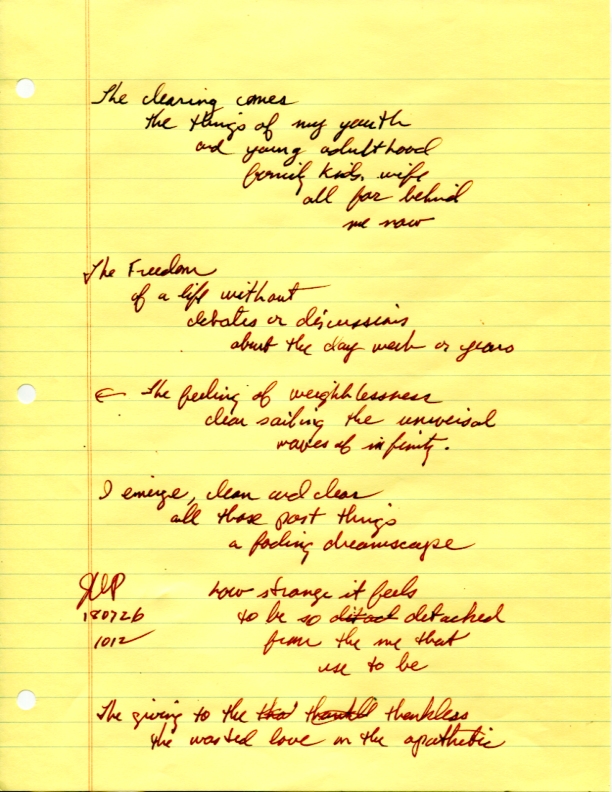 The clearing comes
the things of my youth
and young adulthood
family kids, wife
all far behind
me now
The Freedom
of a life without
debates or discussions
about the day week or years
← The feeling of weightlessness
clear sailing the universal
waves of infinity.
I emerge, clean and clear
all those past things
a fading dreamscape
JWP how strange it feels
180726 to be so detact detached
1012 from the me that
use to be
The giving to the thankless
the wasted love on the apathetic